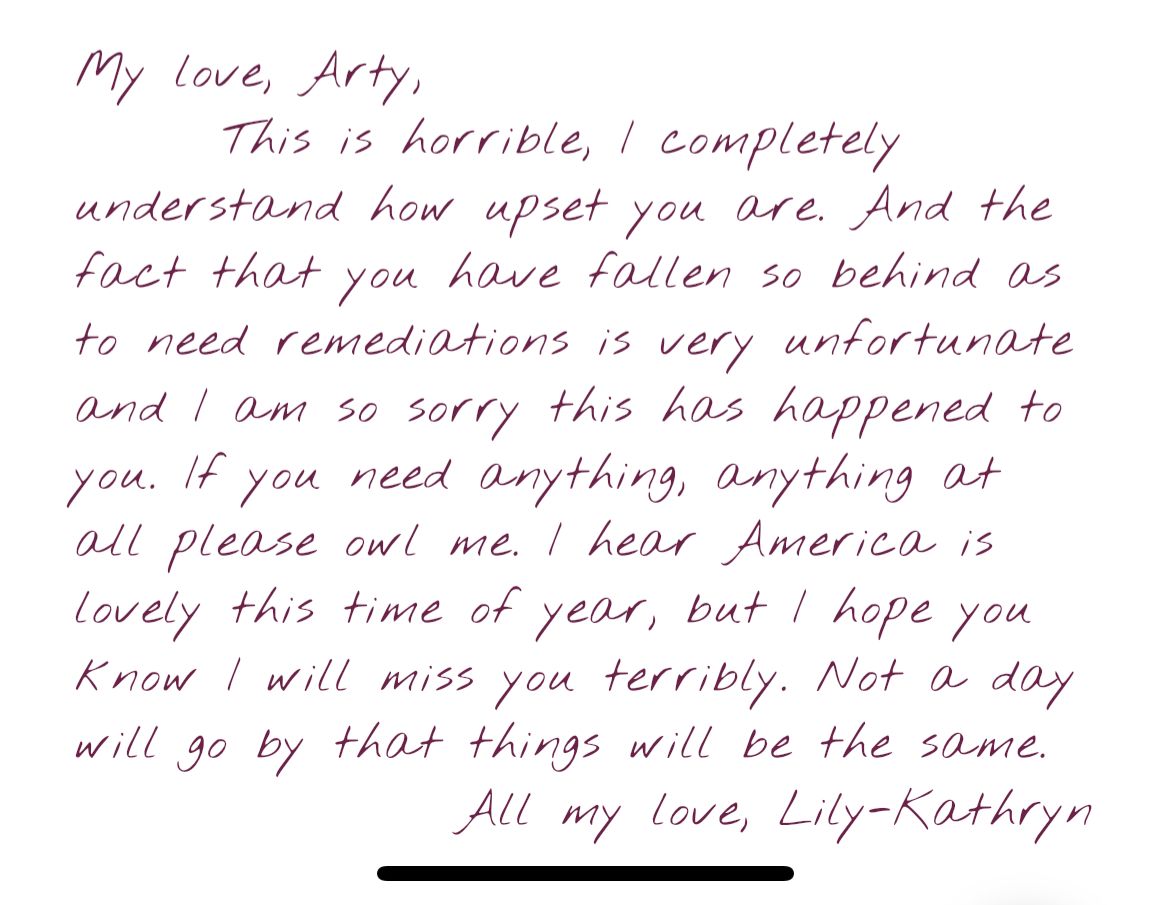 My love, Arty,
This is horrible, I completely
understand how upset you are. And the
fact that you have fallen so behind as
to need remediations is very unfortunate
and I am so sorry this has happened to
you. If you need anything, anything at
all please owl me. I hear America is
lovely this time of year, but I hope you
know I will miss you terribly. Not a day
will go by that things will be the same.
All my love, Lily-Kathryn